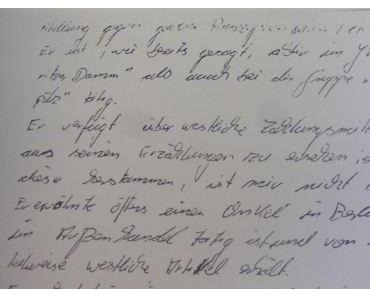 gegen
Er ist, wie bereits gesagt, aktiv im
Damm" als auch bei der Gruppe
tätig.
Er verfügt über westliche Zahlungsmitt
aus seinen Erzählungen zu ersehen is
diese herkommen, ist mir nicht
Er erwähnte öfters einen Onkel in Berli
im Außenhandel tätig ist und von
teilweise westliche Artikel erhält.